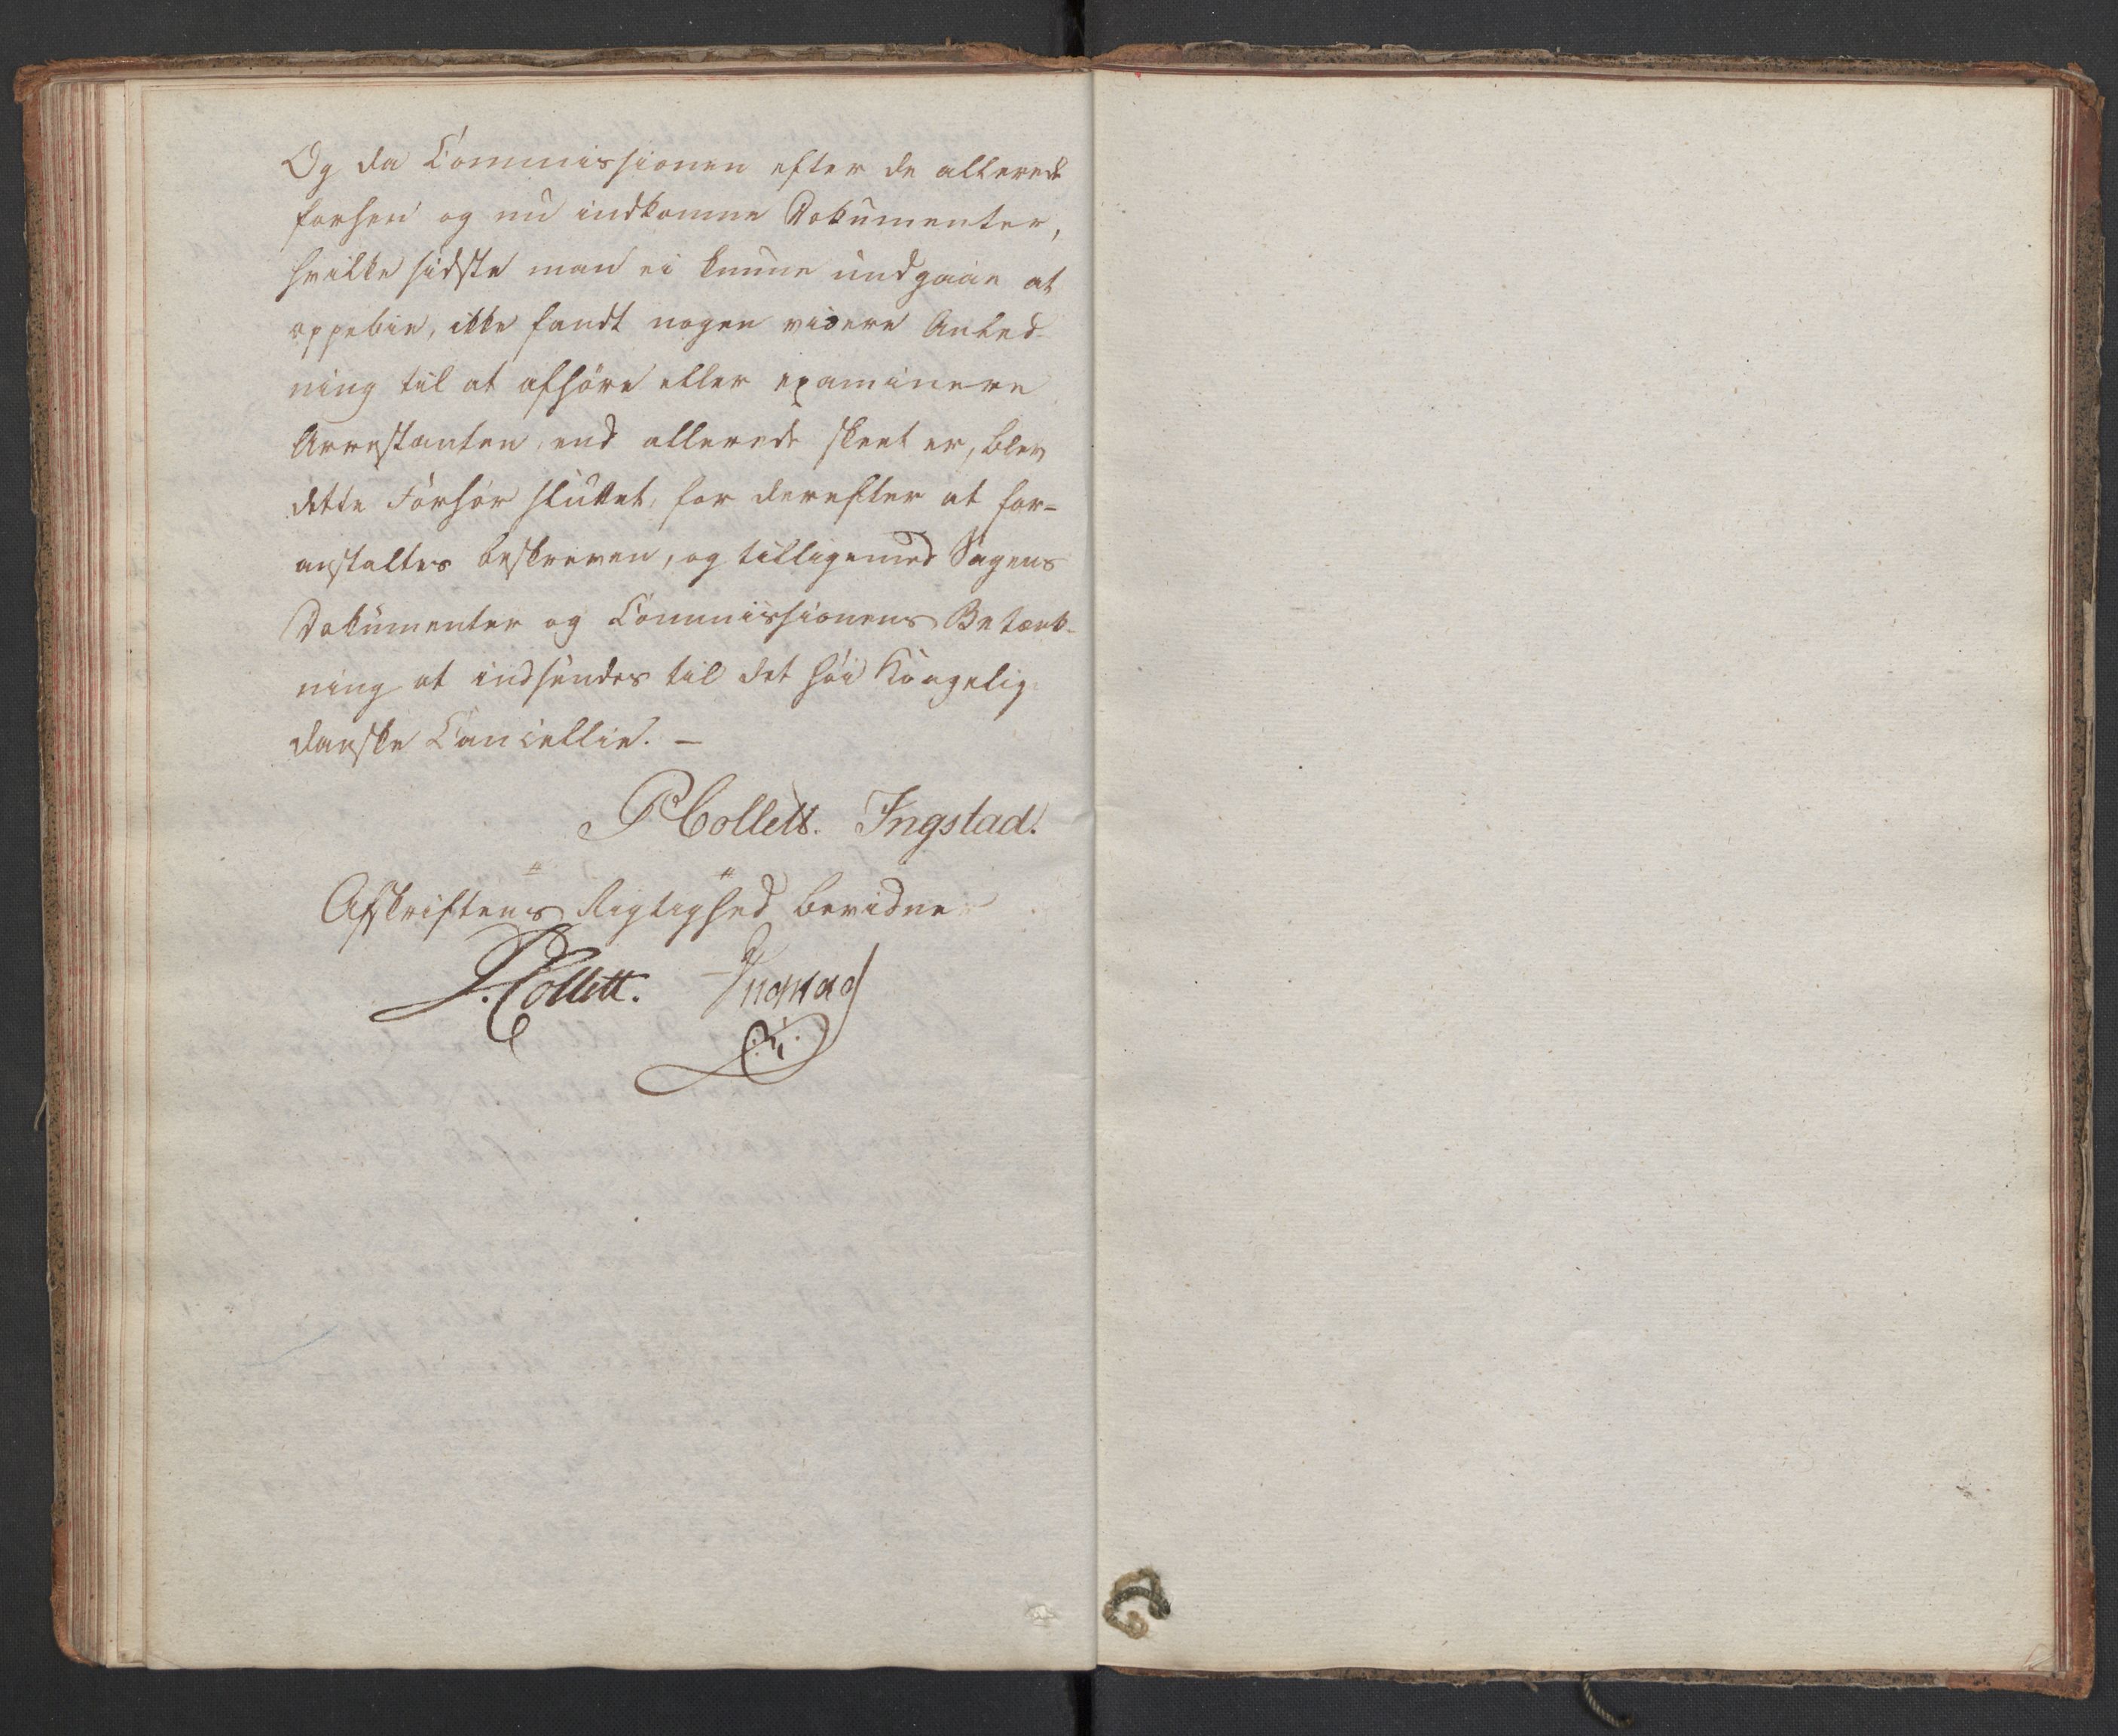 Og da Commissionen efter de allerede
forhen og nu indkomne Dokumenter,
hvilke sidste man ei kunne undgaae at
oppebie, ikke fandt nogen videre Anled-
ning til at afhöre eller examinere
Arrestanten, end allerede skeet er, blev
dette Forhör sluttet, for derefter at for-
anstaltes beskreven, og tilligemed Sagens
Dokumenter og Commissionens Betænk-
ning at indsendes til det höi Kongelig
danske Cancellie. –
P Collett. Ingstad.
Afskriftens Rigtighed bevidner
P. Collett. Ingstad